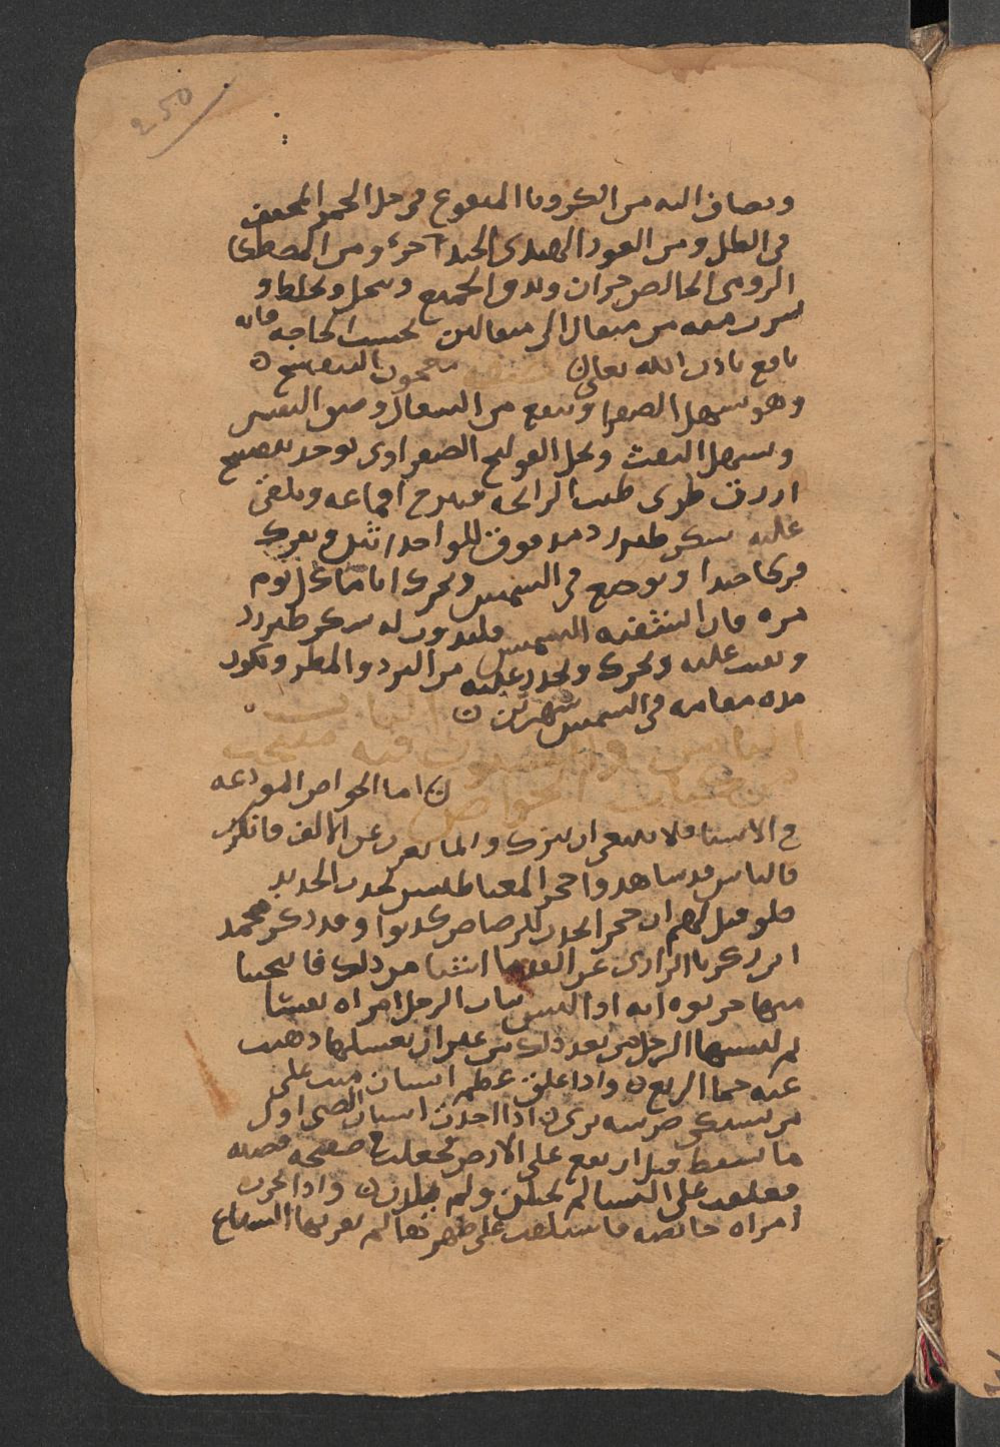 250
ويضاف اليه من الكرويا المنقوع في خل الخمر المجفف
في الظل ومن العود الهندي الجيد آخر ومن المصطكا
الرومي الخالص جزان ويدق الجميع وينخل ويخلط و
يشرب منه من مثقال الى مثقالين بحسب الحاجه فانه
نافع باذن الله تعالى صفة معجون البنفسج
وهو يسهل الصفرا وينفع من السعال وضيق النفس
ويسهل النفث ويحل القولنج الصفراوي يوخذ بنفسج
ازرق طري طيب الرايحه فيخرج اقماعه ويلقى
عليه سكر طبرزد مدقوق للواحد اثنين ويعرك
عركا جيدا ويوضع في الشمس ويحرك اياما كل يوم
مره فان انشفته الشمس فليذوب له سكر طبرزد
ويصب عليه ويحرك ويحذر عليه من البرد والمطر ويكون
مده مقامه في الشمس شهرين
الباب
فيه
الخواص
اما الخواص المودعه
في الاشيا فلا ينبغي ان تترك وانما
فالناس قد شاهدوا حجر المغناطيس يجذب الحديد
فلو قيل لهم ان حجر الجذب للرصاص كذبوا وقد ذكر محمد
ابن زكريا الرازي عن القدما اشيا من ذلك
منها جربوه انه اذا البس ثياب الرجل امراه نفسا
ثم لبسها الرجل من بعد ذلك من غير ان يغسلها ذهبت
عنه حما الربع واذا علق عظم انسان ميت على
من يشتكي ضرسه برى اذا اخذت اسنان الصبي اول
ما يسقط قبل ان يقع على الارض فجعلت في صفيحه فضه
فعلقت على النسا لم يحبلن ولم يلدن واذا
امراه حايضه فاستلقت على ظهرها لم يقربها السباع